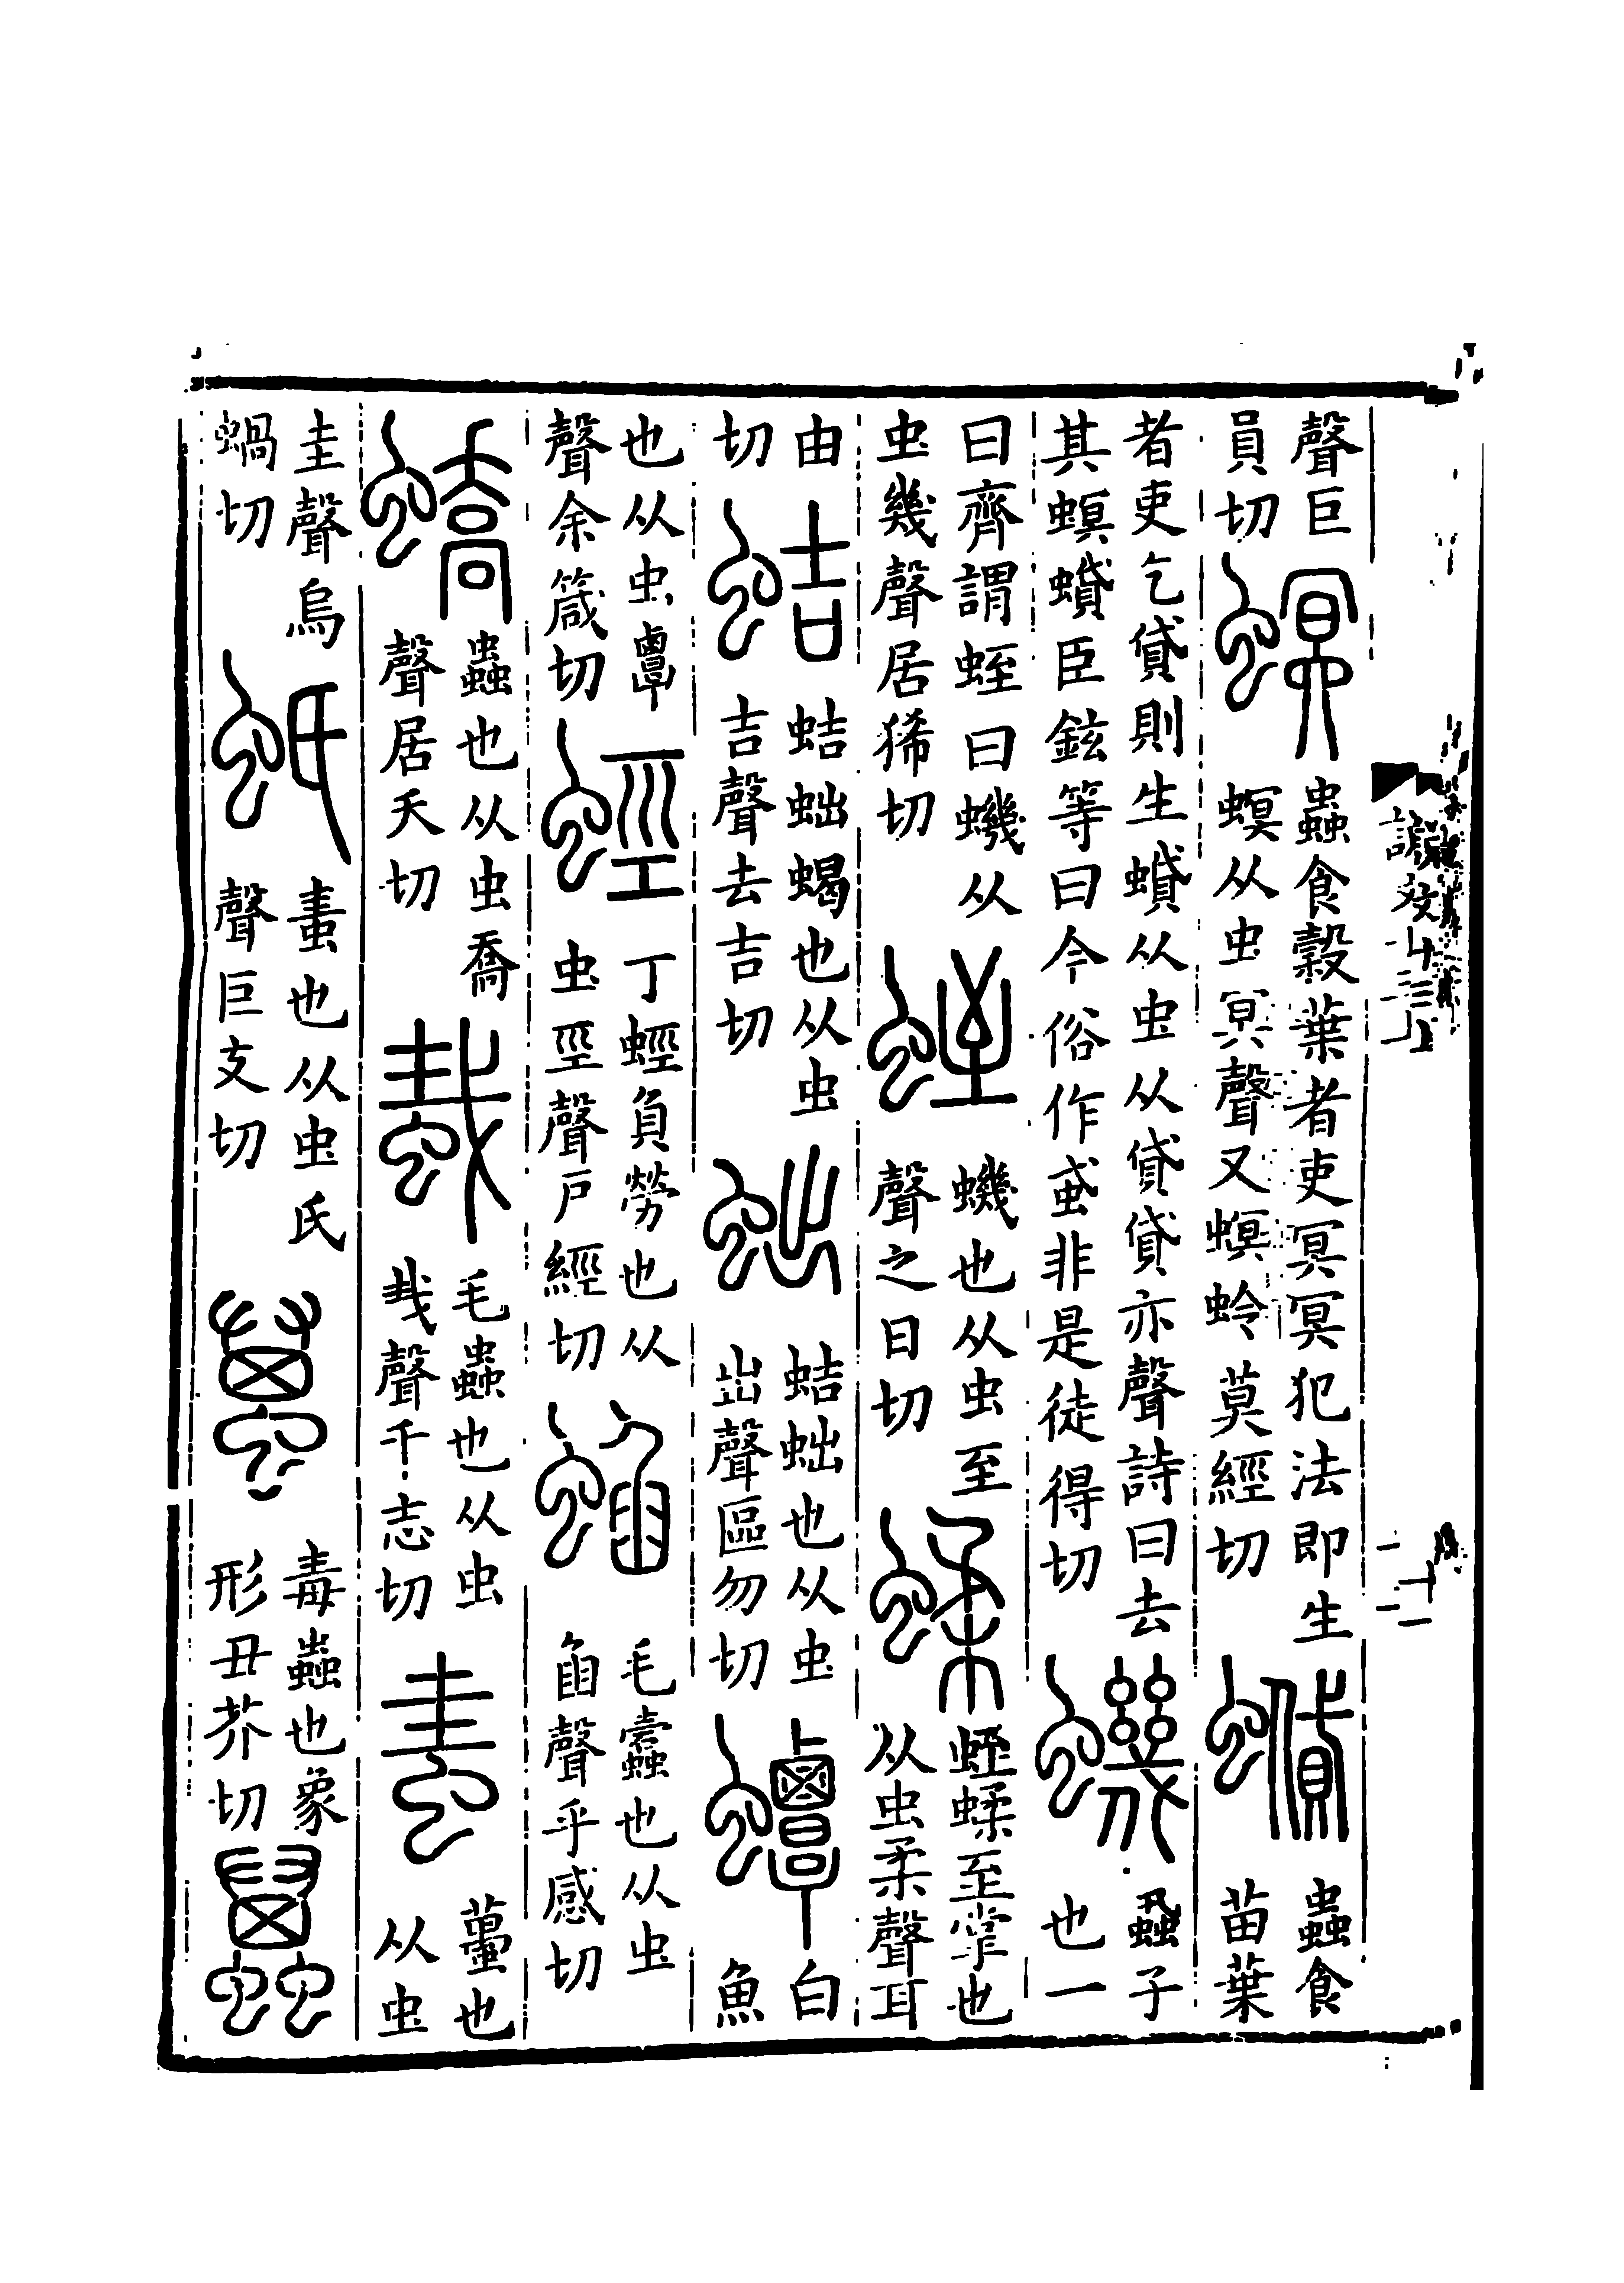 說文十三上
聲巨員切螟蟲食穀葉者吏冥冥犯法即生螟从虫冥聲又螟蛉莫經切蟘蟲食苗葉
者吏乞貸則生蟘从虫从貸貸亦聲詩曰去其螟蟘臣鉉等曰今俗作䘍非是徒得切蟣蝨子也一
曰齊謂蛭曰蟣从虫幾聲居狶切蛭蟣也从虫至聲之日切蝚蛭蝚至掌也从虫柔聲耳
由切蛣蛣䖦蝎也从虫吉聲去吉切䖦蛣䖦也从虫出聲區勿切蟫白魚
也从虫覃聲余箴切蛵丁蛵負勞也从虫巠聲戶經切蜭毛蠹也从虫臽聲乎感切
蟜蟲也从虫喬聲居夭切蛓毛蟲也从虫𢦏聲千志切䖯蠆也从虫
圭聲烏蝸切蚔䖯也从虫氏聲巨支切蠆毒蟲也象形丑芥切